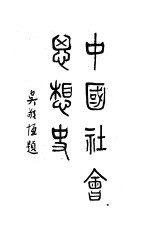 中國社會
思想史
吳敬恆題